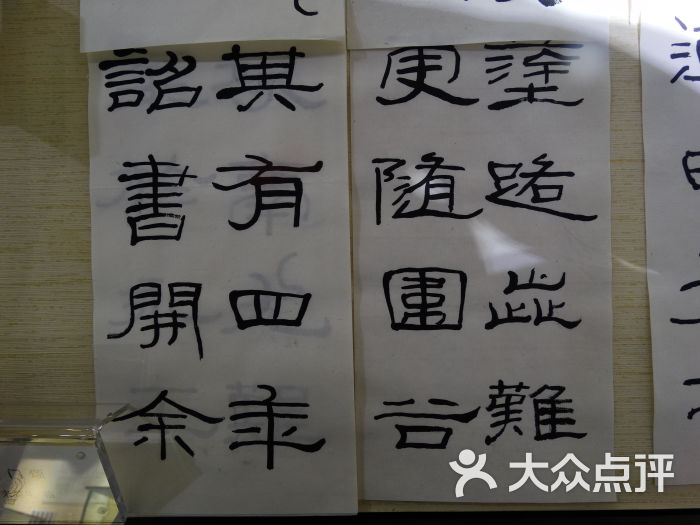 塗路歰難
更隨圍谷
其有四年
詔書開余
大众点评